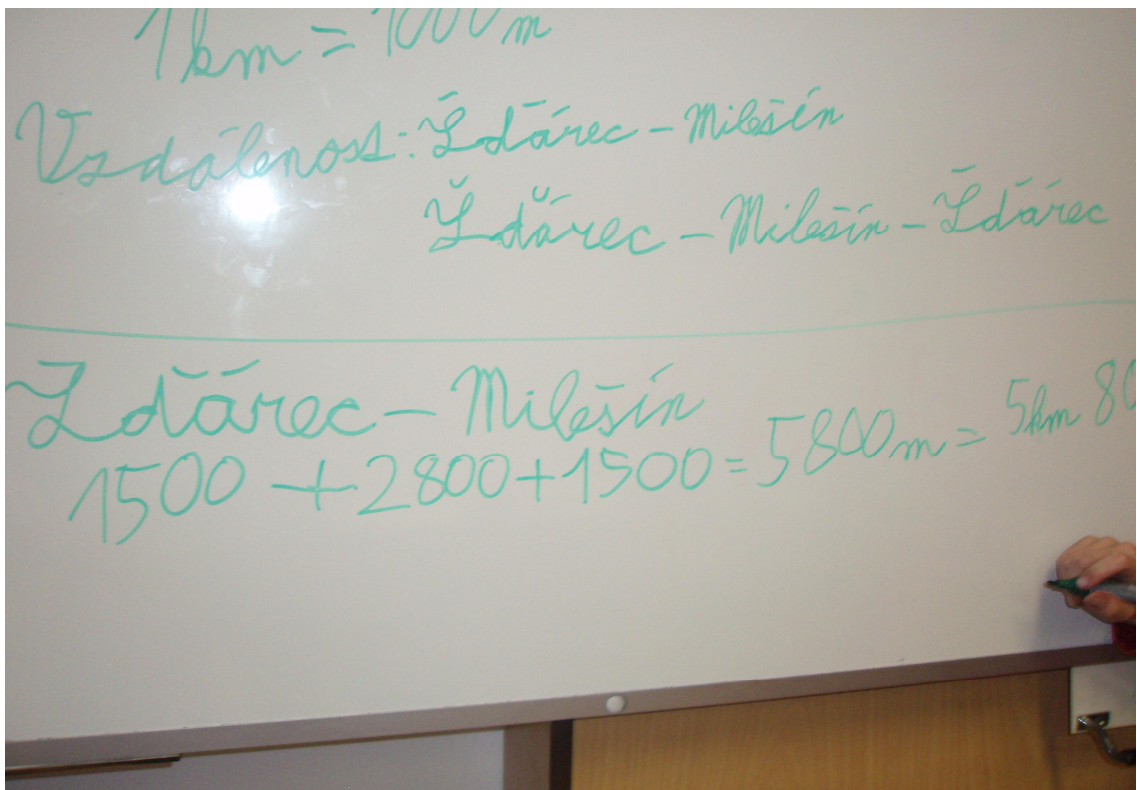 1km = 1000m
Vzdálenost: Žďárec - Milešín
Žďárec - Milešín - Žďárec
Žďárec - Milešín
1500 + 2800 + 1500 = 5800m = 5km 80